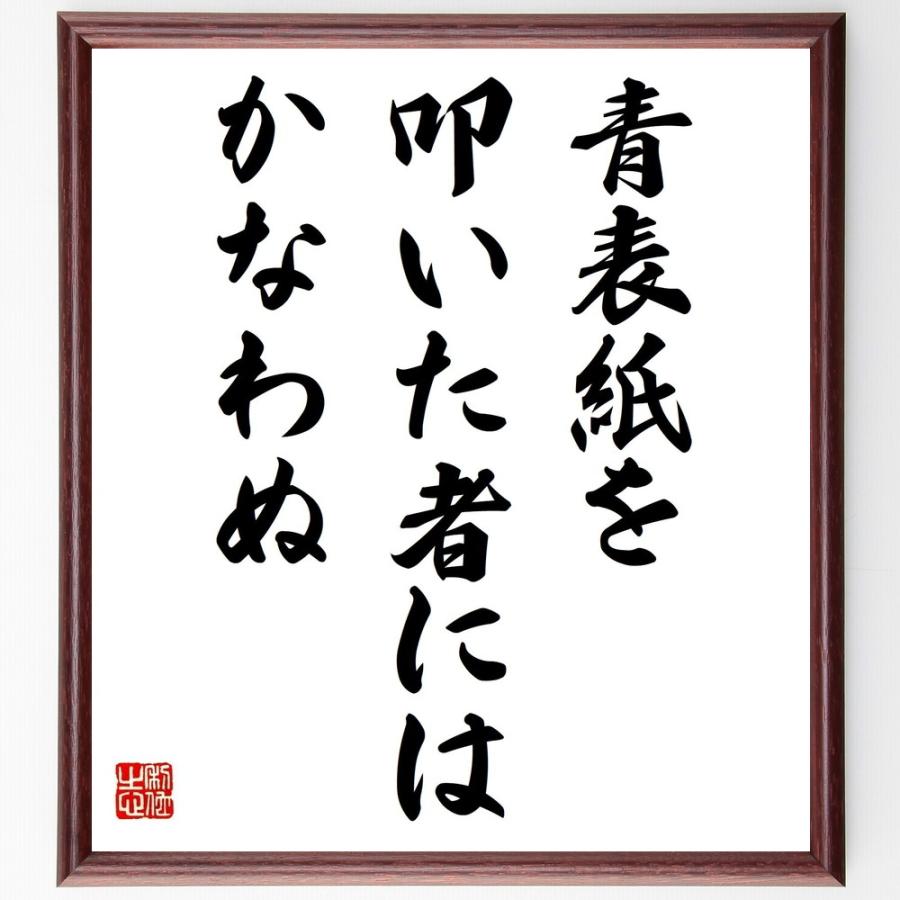 青表紙を
叩いた者には
かなわぬ